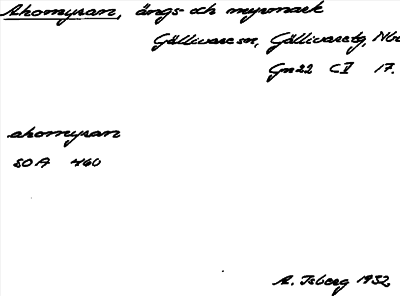 Akomyran, ängs- och myrmark
Gällivare sn, Gällivare tg, Nbo
Gn22 CV 17.
akomyran
SOA 460
A. Isberg 1932